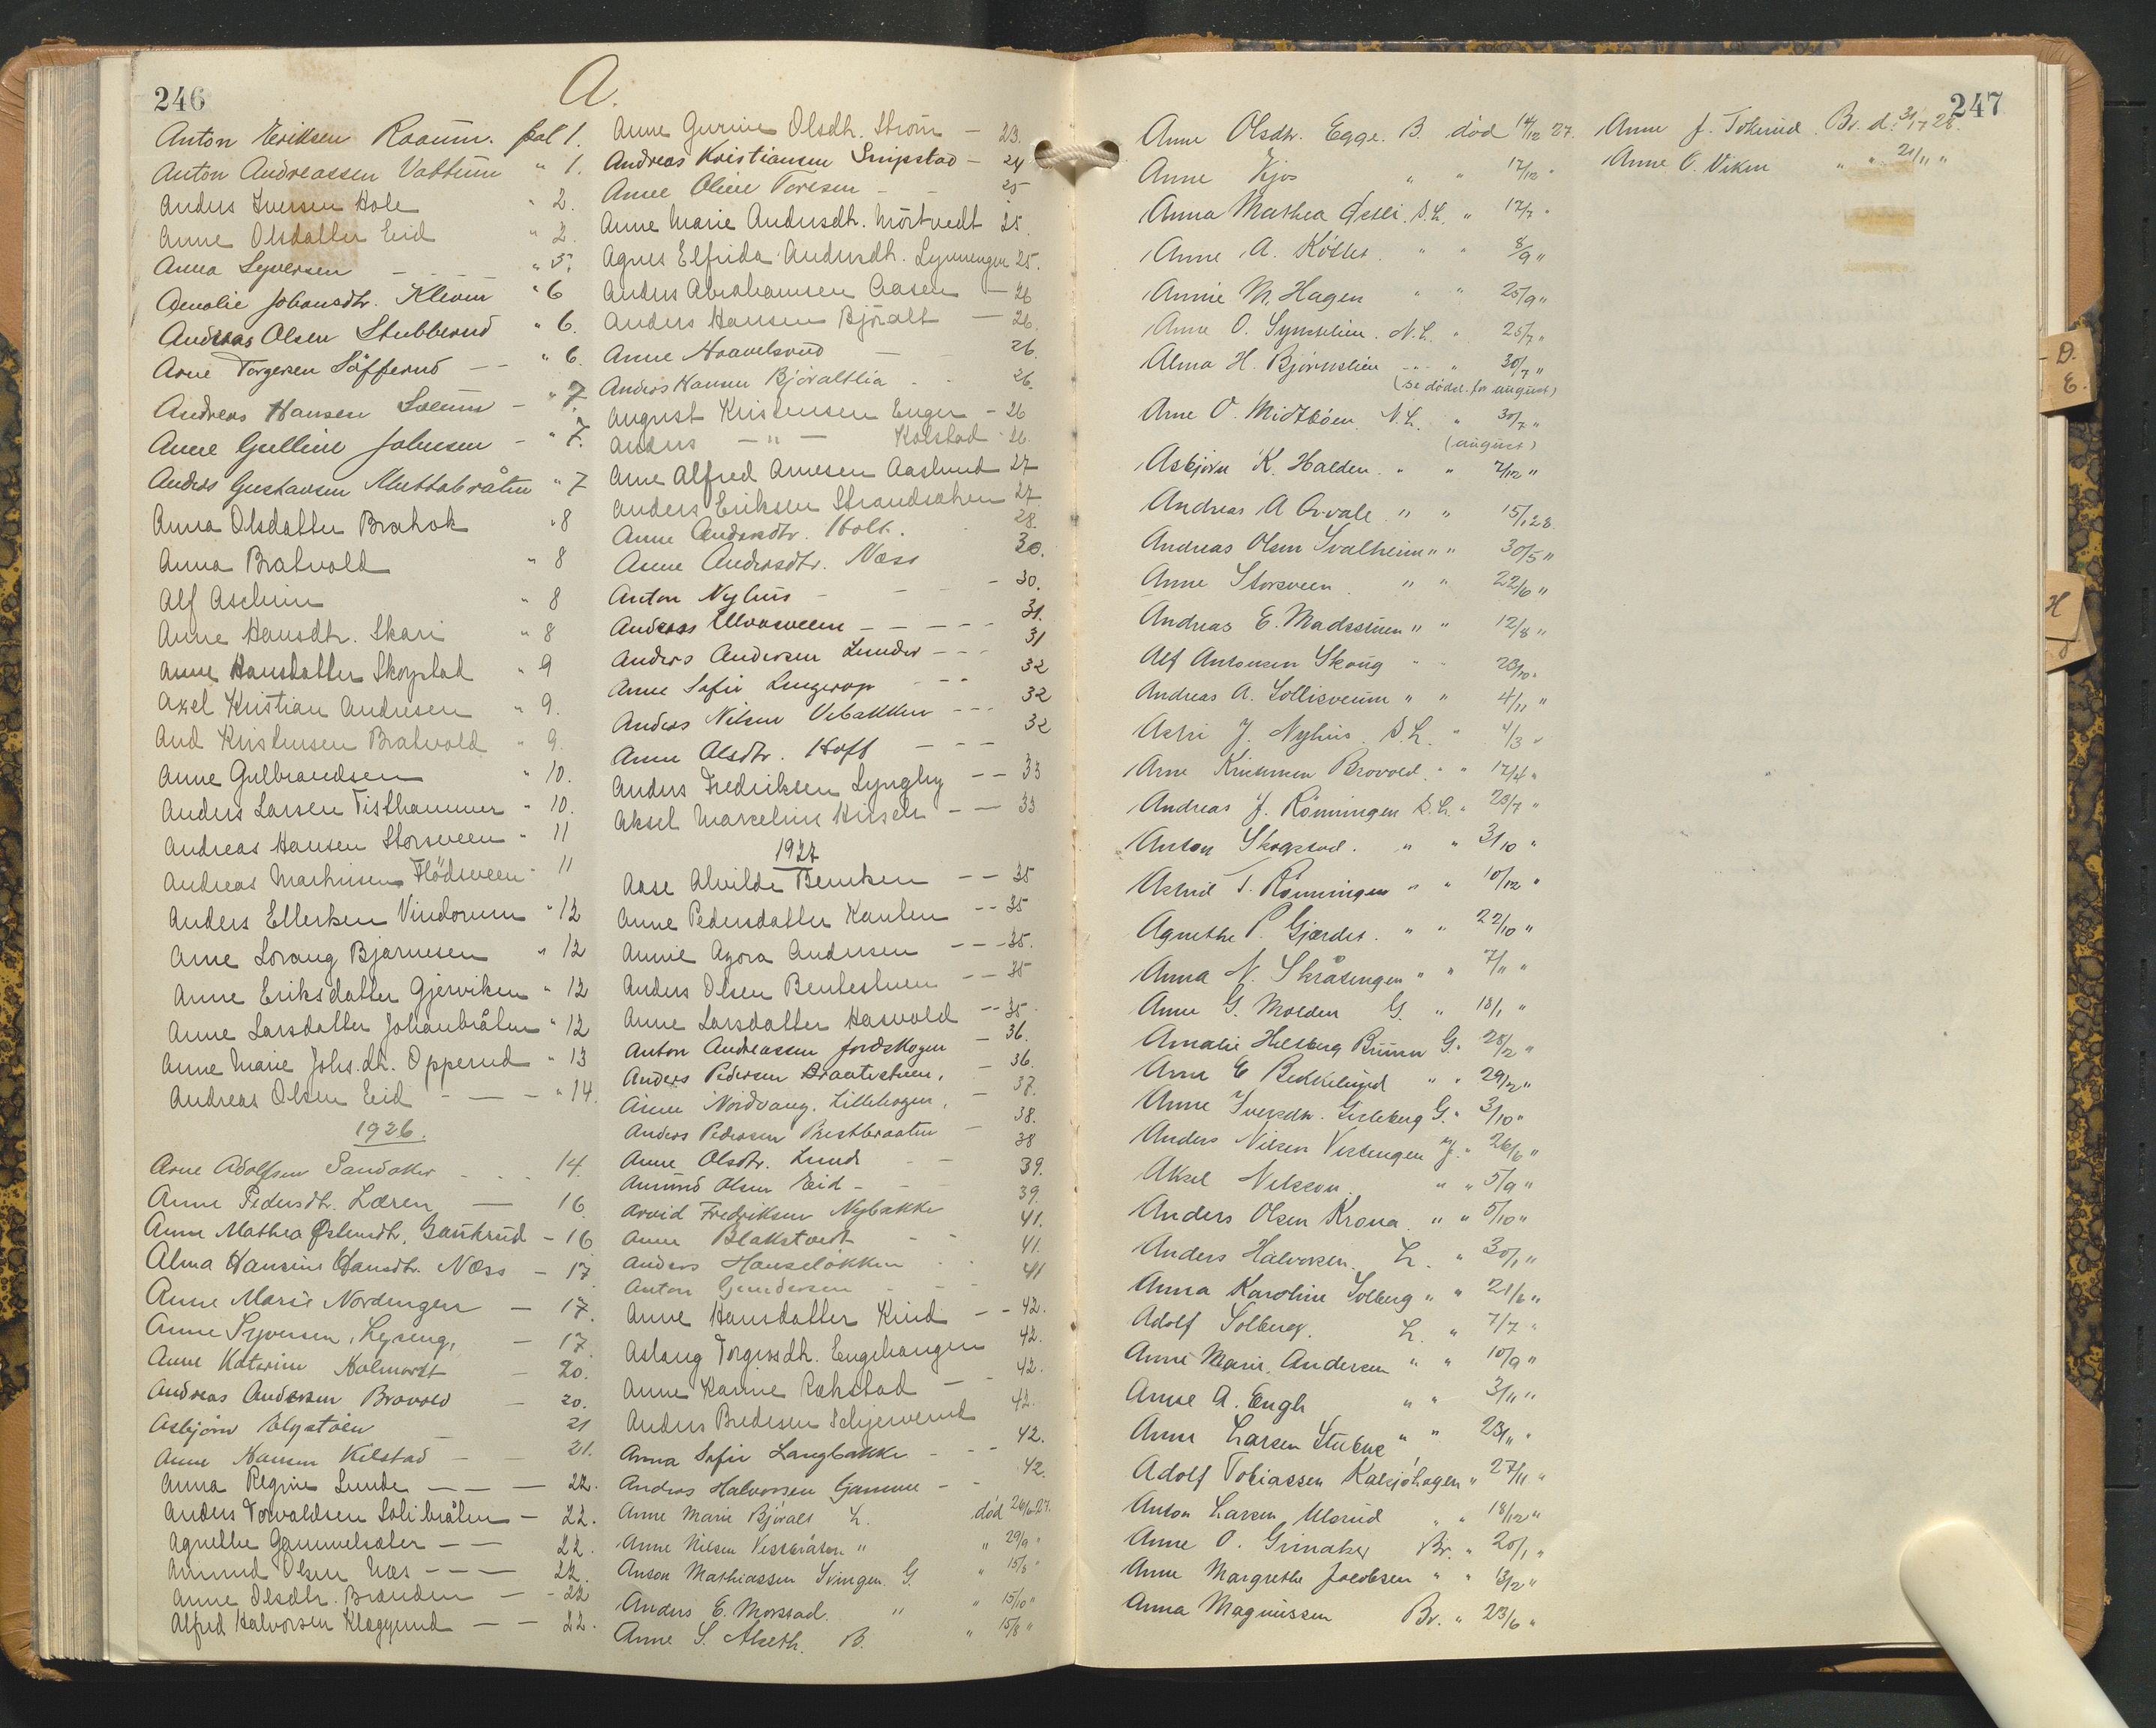 246
A.
Anton Eriksen Raaum. fol 1.
Anton Andreassen Vattum " 1.
Anders Iversen Hole " 2.
Anne Olsdatter Eid " 2.
Anna Syversen - - - " 5.
Amalie Johansdtr. Kleven " 6
Andreas Olsen Stubberud " 6.
Arne Torgersen Söfferud - - " 6.
Andreas Hansen Loeum - " 7.
Anne Gulline Johnsen - " 7.
Anders Gustavsen Muttabråten " 7
Anna Olsdatter Brahok " 8
Anna Bratvold " 8
Alf Ascheim " 8
Anne Hansdtr. Skari " 8
Anne Hansdatter Skogstad " 9
Axel Kristian Andresen " 9.
And Kristensen Bratvold " 9.
Anne Gulbrandsen " 10.
Anders Larsen Tisthammer " 10.
Andreas Hansen Storsveen " 11
Andreas Mathisen Flödsveen " 11
Anders Ellefsen Vindorum " 12
Arne Lorang Bjarnesen " 12
Anne Eriksdatter Gjerviken " 12
Anne Larsdatter Johanbråten " 12
Anne Marie Johs.dtr. Opperud " 13
Andreas Olsen Eid - - - " 14.
1926.
Arne Adolfsen Sandaker - - - 14.
Anne Pedersdtr. Læren — 16.
Anne Mathea Østensdtr. Gaukrud - 16
Alma Hansine Hansdtr. Næss - 17
Anne Marie Nordengen — 17.
Anne Syversen, Lyseng, — 17.
Anne Katerine Holmordt — 20.
Andreas Andersen Brovold — 20.
Asbjörn Elgstöen 21
Anne Hansen Kilstad — 21.
Anna Regine Lunde — — — 22.
Anders Torvaldsen Solibråten — 22.
Agnethe Gammelsæter — — 22.
Amund Olsen Næs - - — 22.
Anne Olsdtr. Branden — - 22
Alfred Halvorsen Klæggerud — - 22.
Anne Gurine Olsdh. Ström - 23.
Andreas Kristiansen Snipstad - 24
Anne Oline Toresen - - 25
Anne Marie Andersdh. Mörtvedt 25.
Agnes Elfrida Andersdh. Lynnengen 25.
Anders Abrahamsen Aasen — 26
Anders Hansen Björalt — 26.
Anne Haavelsrud — 26.
Anders Hansen Björaltlia - - 26.
August Kristensen Enger - 26
Anders — " — Kolstad - 26.
Arne Alfred Arnesen Aaslund 27
Anders Eriksen Strandsæteren 27.
Anne Andersdtr. Holt. - 28.
Anne Andersdtr. Næss 30.
Anton Nyhus - - - - 30.
Andreas Ulvasveen - - - - - 31.
Anders Andersen Lunder - - - 31
Anne Sofie Lingerop - - - 32
Anders Nilsen Vebakken - - - 32
Anne Olsdtr. Hoff — - - 32
Anders Fredriksen Lyngby - - 33
Aksel Marcelius Hirsch - — 33
1927
Aase Alvilde Benken - - 35
Anne Pedersdatter Kanten - - 35
Annie Agora Andersen - - - 35.
Anders Olsen Bentestuen - - 35
Anne Larsdatter Hasvold - - 35.
Anton Andreassen Jordskogen - 36.
Anders Pedersen Braatestuen, - 36.
Anne Nordvang, Lillehagen, - 37.
Anders Pedersen Prestbraaten - 38.
Anne Olsdtr. Lunde - - 38
Amund Olsen Eid - - - 39.
Arvid Fredriksen Nybakke 39.
Anne Blakstvedt - - 41.
Anders Hanseløkken - - 41.
Anton Gundersen - - 41
Anne Hansdatter Kind - - 42.
Aslaug Torgersdh. Engehaugen 42.
Anne Karine Rakstad — - 42.
Anders Bredesen Schjerverud 42.
Anna Sofie Langbakke - - - 42.
Andreas Halvorsen Gamme - - 42.
Anne Marie Björalt L. död 26/6 27.
Anne Nilsen Vesteråsen " " 29/9 "
Anton Mathiassen Svingen G. " 15/5 "
Anders E. Morstad. " " 15/10 "
Anne S. Alseth B. " 15/8 "
247
Anne Olsdtr. Egge. B. död 14/12 27.
Anne Kjos " " 17/12 "
Anna Mathea Østli. S.L. " 17/7 "
Anne A. Kölles. " " 8/9 "
Annie M. Hagen " " 25/9 "
Anne O. Synstelien. N.L. " 25/7 "
Alma H. Björnslien - - - " 30/7 "
(Se dödsl. for august)
Arne O. Midtböen. N.L. " 30/7 "
(august)
Asbjörn K. Halden. " " 7/12 "
Andreas A Orvale " " 15/1 28.
Andreas Olsen Svalheim " " 30/5 "
Anne Storsveen " " 22/6 "
Andreas E. Madsstuen " " 12/8 "
Alf Antonsen Skoug " " 28/10 "
Andreas A. Sollisveum " " 4/11 "
Astri J. Nyhus. S.L. " 4/3 "
Arne Kristensen Brovold. " " 17/4 "
Andreas J. Rönningen S.L. " 23/7 "
Anton Skogstad. " " 3/10 "
Astrid T. Rönningen " " 10/12 "
Agnethe P. Gjærdet. " " 22/10 "
Anna N. Skråsengen " " 7/11 "
Anne G. Molden G. " 18/1 "
Amalie Helsberg Bruun G. " 28/2 "
Anne E Bekkelund " " 29/2 "
Anne Iversdtr. Gisleberg G. " 3/10 "
Anders Nilsen Vestengen G. " 26/6 "
Aksel Nelsson. " " 5/9 "
Anders Olsen Krona " " 5/10 "
Anders Halvorsen. L. " 30/1 "
Anna Karoline Solberg " " 21/6 "
Adolf Solberg. L. " 7/7 "
Anne Marie Andersen " " 10/9 "
Anne A. Engh " " 3/11 "
Anna Larsen Stubne " " 23/11 "
Adolf Tobiassen Kalsjöhagen " 27/11 "
Anton Larsen Ulsrud " " 18/12 "
Anne O. Grinaker Br. " 20/1 "
Anne Margrethe Jacobsen " " 13/2 "
Anna Magnussen Br. " 23/6 "
Anne J. Tokerud Br. d. 31/7 28.
Anne O. Viken " " 21/11 "
D.
E.
H